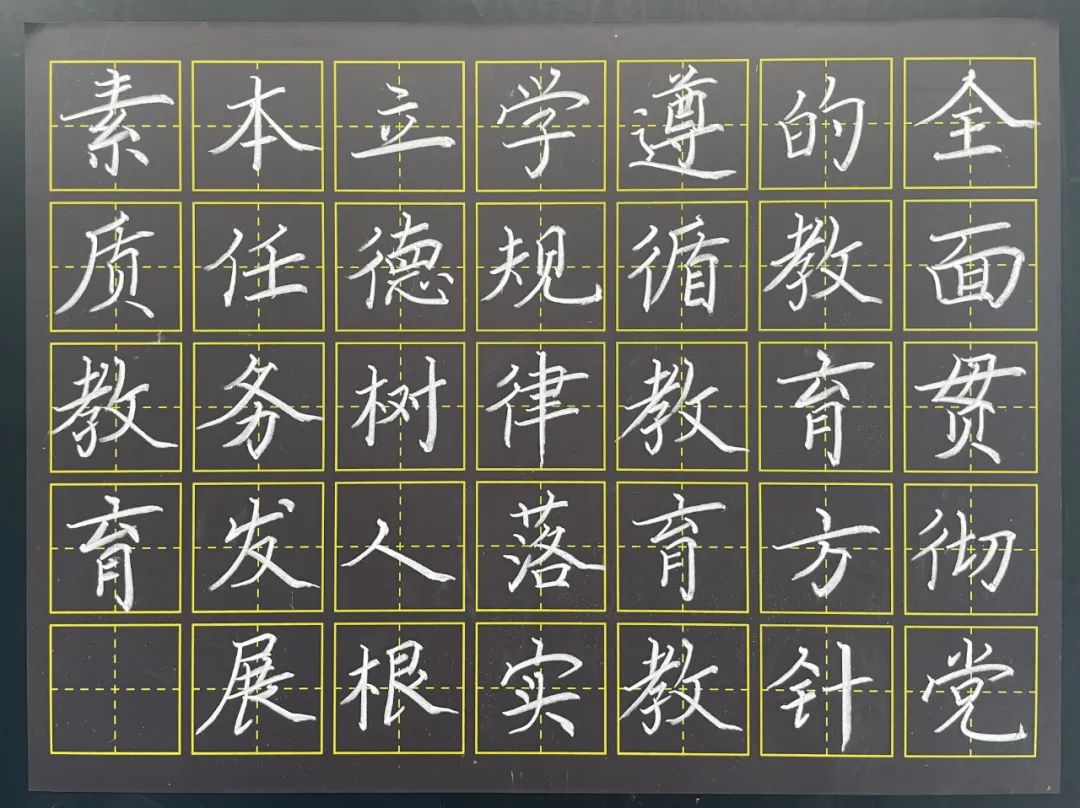 全面贯彻党
的教育方针
遵循教育教
学规律落实
立德树人根
本任务发展
素质教育